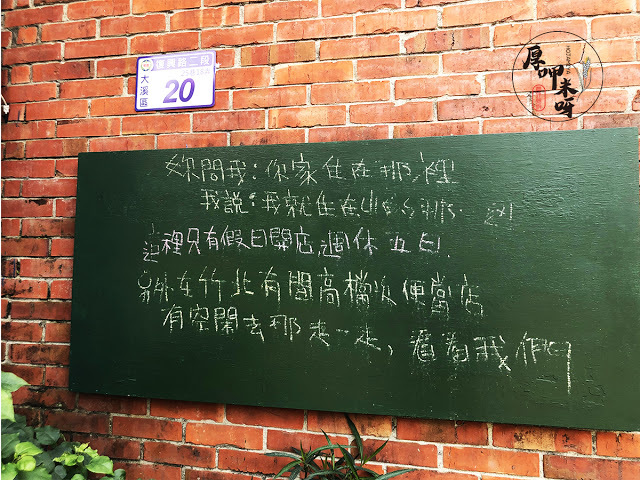 復興路二段
大溪區
20
厚呷米呀
妳問我：你家住在那裡
我說：我就住在山的那
這裡只有假日開店，週休五日．
另外在竹北有間高檔次便當店
有空閒去那走一走，看看我們